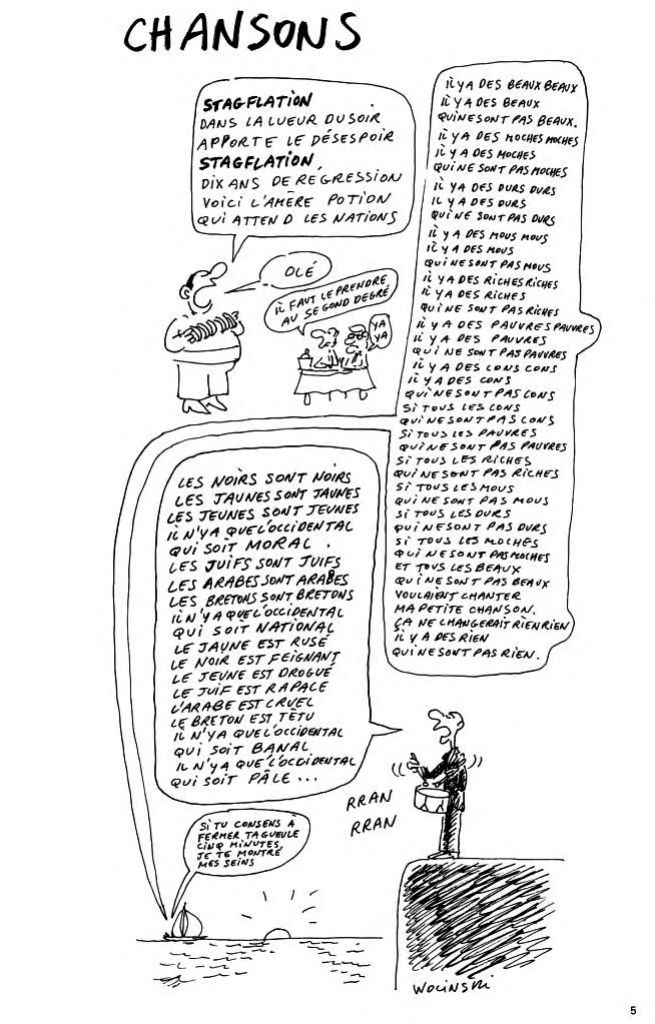 CHANSONS
STAGFLATION
DANS LA LUEUR DU SOIR
APPORTE LE DÉSESPOIR
STAGFLATION,
DIX ANS DE RÉGRESSION
VOICI L'AMÈRE POTION
QUI ATTEND LES NATIONS
OLÉ
IL FAUT LE PRENDRE
AU SECOND DEGRÉ
YA
YA
IL Y A DES BEAUX BEAUX
IL Y A DES BEAUX
QUI NE SONT PAS BEAUX.
IL Y A DES MOCHES MOCHES
IL Y A DES MOCHES
QUI NE SONT PAS MOCHES
IL Y A DES DURS DURS
IL Y A DES DURS
QUI NE SONT PAS DURS
IL Y A DES MOUS MOUS
IL Y A DES MOUS
QUI NE SONT PAS MOUS
IL Y A DES RICHES RICHES
IL Y A DES RICHES
QUI NE SONT PAS RICHES
IL Y A DES PAUVRES PAUVRES
IL Y A DES PAUVRES
QUI NE SONT PAS PAUVRES
IL Y A DES CONS CONS
IL Y A DES CONS
QUI NE SONT PAS CONS
SI TOUS LES CONS
QUI NE SONT PAS CONS
SI TOUS LES PAUVRES
QUI NE SONT PAS PAUVRES
SI TOUS LES RICHES
QUI NE SONT PAS RICHES
SI TOUS LES MOUS
QUI NE SONT PAS MOUS
SI TOUS LES DURS
QUI NE SONT PAS DURS
SI TOUS LES MOCHES
QUI NE SONT PAS MOCHES
ET TOUS LES BEAUX
QUI NE SONT PAS BEAUX
VOULAIENT CHANTER
MA PETITE CHANSON.
ÇA NE CHANGERAIT RIEN RIEN
IL Y A DES RIEN
QUI NE SONT PAS RIEN.
LES NOIRS SONT NOIRS
LES JAUNES SONT JAUNES
LES JEUNES SONT JEUNES
IL N'Y A QUE L'OCCIDENTAL
QUI SOIT MORAL.
LES JUIFS SONT JUIFS
LES ARABES SONT ARABES
LES BRETONS SONT BRETONS
IL N'Y A QUE L'OCCIDENTAL
QUI SOIT NATIONAL
LE JAUNE EST RUSÉ
LE NOIR EST FEIGNANT
LE JEUNE EST DROGUÉ
LE JUIF EST RAPACE
L'ARABE EST CRUEL
LE BRETON EST TÊTU
IL N'Y A QUE L'OCCIDENTAL
QUI SOIT BANAL
IL N'Y A QUE L'OCCIDENTAL
QUI SOIT PÂLE...
RRAN
RRAN
SI TU CONSENS À
FERMER TA GUEULE
CINQ MINUTES,
JE TE MONTRE
MES SEINS
WOLINSKI
5